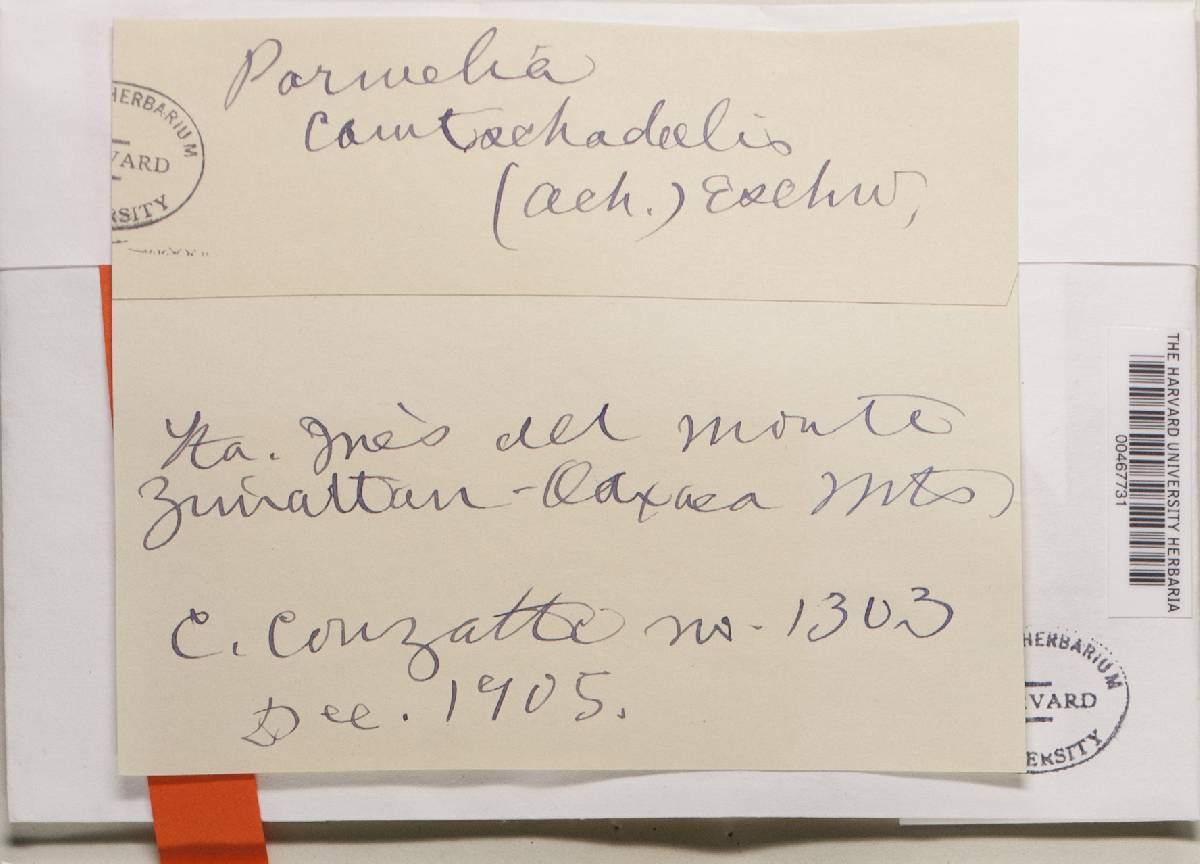 Parmelia
camtschadalis
(Ach.) Eschw,
HERBARIUM
VARD
RSITY
Sta. Inès del Monte
Zimatlan - Oaxaca Mts,
C. Conzatti no. 1303
Dec. 1905.
THE HARVARD UNIVERSITY HERBARIA
00467731
HERBARIUM
VARD
ERSITY